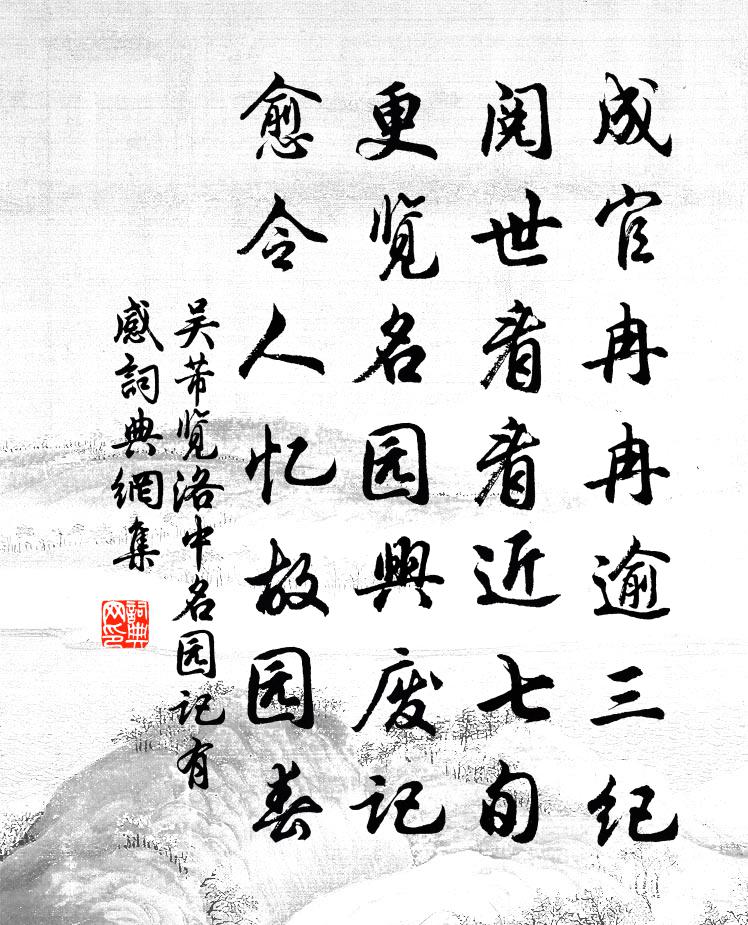 成官冉冉逾三纪
阅世看看近七旬
更览名园興废记
愈令人忆故园春
吴芾览洛中名园记有
感詞典網集
詞典
网印